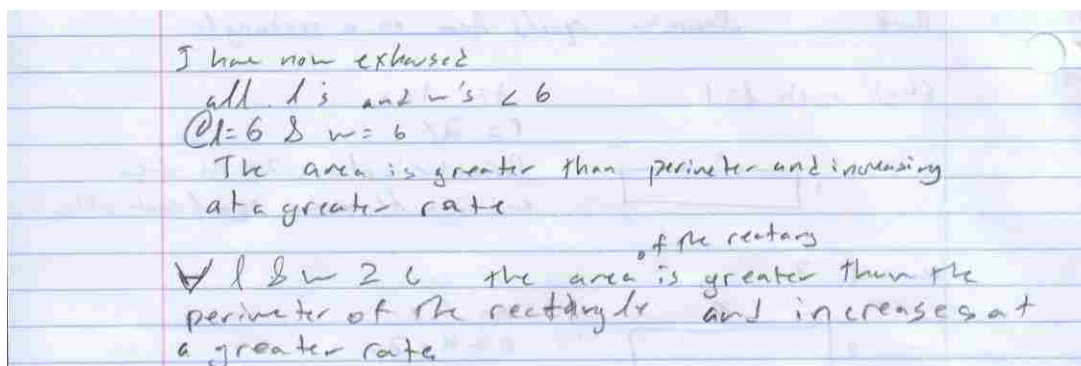 I have now exhaused
all l's and w's < 6
@l=6 & w=6
The area is greater than perimeter and increasing
at a greater rate
of the rectang
∀ l & w ≥ 6 the area is greater than the
perimeter of the rectangle and increases at
a greater rate